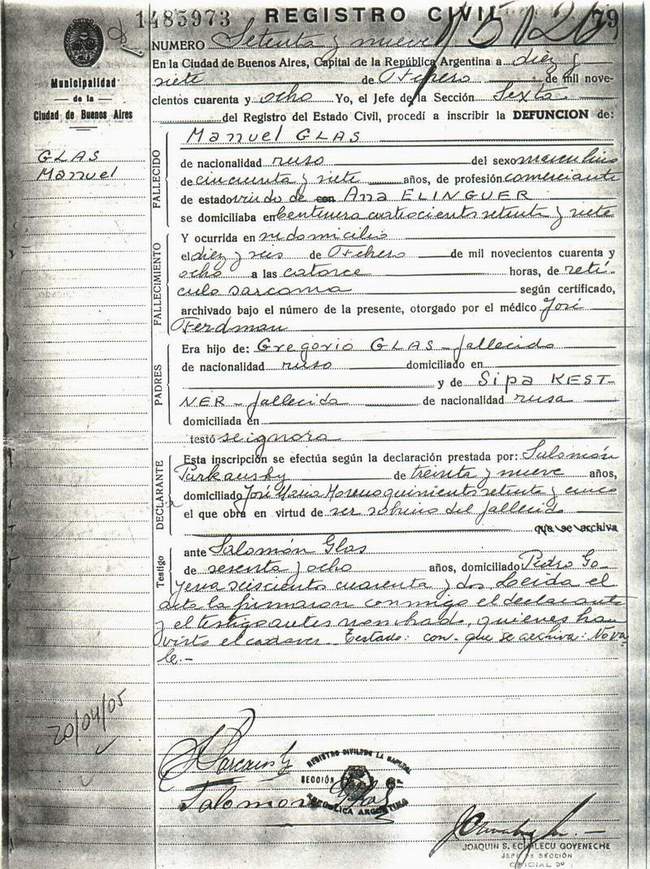 1485973 REGISTRO CIVIL 79
NUMERO Setenta y nueve
En la Ciudad de Buenos Aires, Capital de la República Argentina a diez y
siete de Febrero de mil nove-
cientos cuarenta y ocho Yo, el Jefe de la Sección Sexta
del Registro del Estado Civil, procedí a inscribir la DEFUNCION de:
Municipalidad
de la
Ciudad de Buenos Aires
GLAS
Manuel
FALLECIDO
Manuel GLAS
de nacionalidad ruso del sexo masculino
de cincuenta y siete años, de profesión comerciante
de estado viudo de con Ana ELINGUER
se domiciliaba en Centenera cuatrocientos setenta y siete
FALLECIMIENTO
Y ocurrida en su domicilio
el diez y seis de Febrero de mil novecientos cuarenta y
ocho a las catorce horas, de retí-
culo sarcoma según certificado,
archivado bajo el número de la presente, otorgado por el médico José
Ferdman
PADRES
Era hijo de: Gregorio GLAS - fallecido
de nacionalidad ruso domiciliado en
y de Sipa KEST-
NER - fallecida de nacionalidad rusa
domiciliada en
testó se ignora
DECLARANTE
Esta inscripción se efectúa según la declaración prestada por: Salomón
de treinta y nueve años,
domiciliado José María Moreno quinientos setenta y cinco
el que obra en virtud de ser sobrino del fallecido
que se archiva
Testigo
ante Salomón Glas
de sesenta y ocho años, domiciliado Pedro Go-
yena seiscientos cuarenta y dos Leída el
acta la firmaron conmigo el declarante
y el testigo antes nombrado, quienes han
visto el cadáver. Testado: con - que se archiva: No va-
le.-
20/04/05
REGISTRO CIVIL DE LA CAPITAL
SECCIÓN 6ª
REPUBLICA ARGENTINA
Salomón Glas
JOAQUIN S. ECHALECU GOYENECHE
JEFE DE SECCIÓN